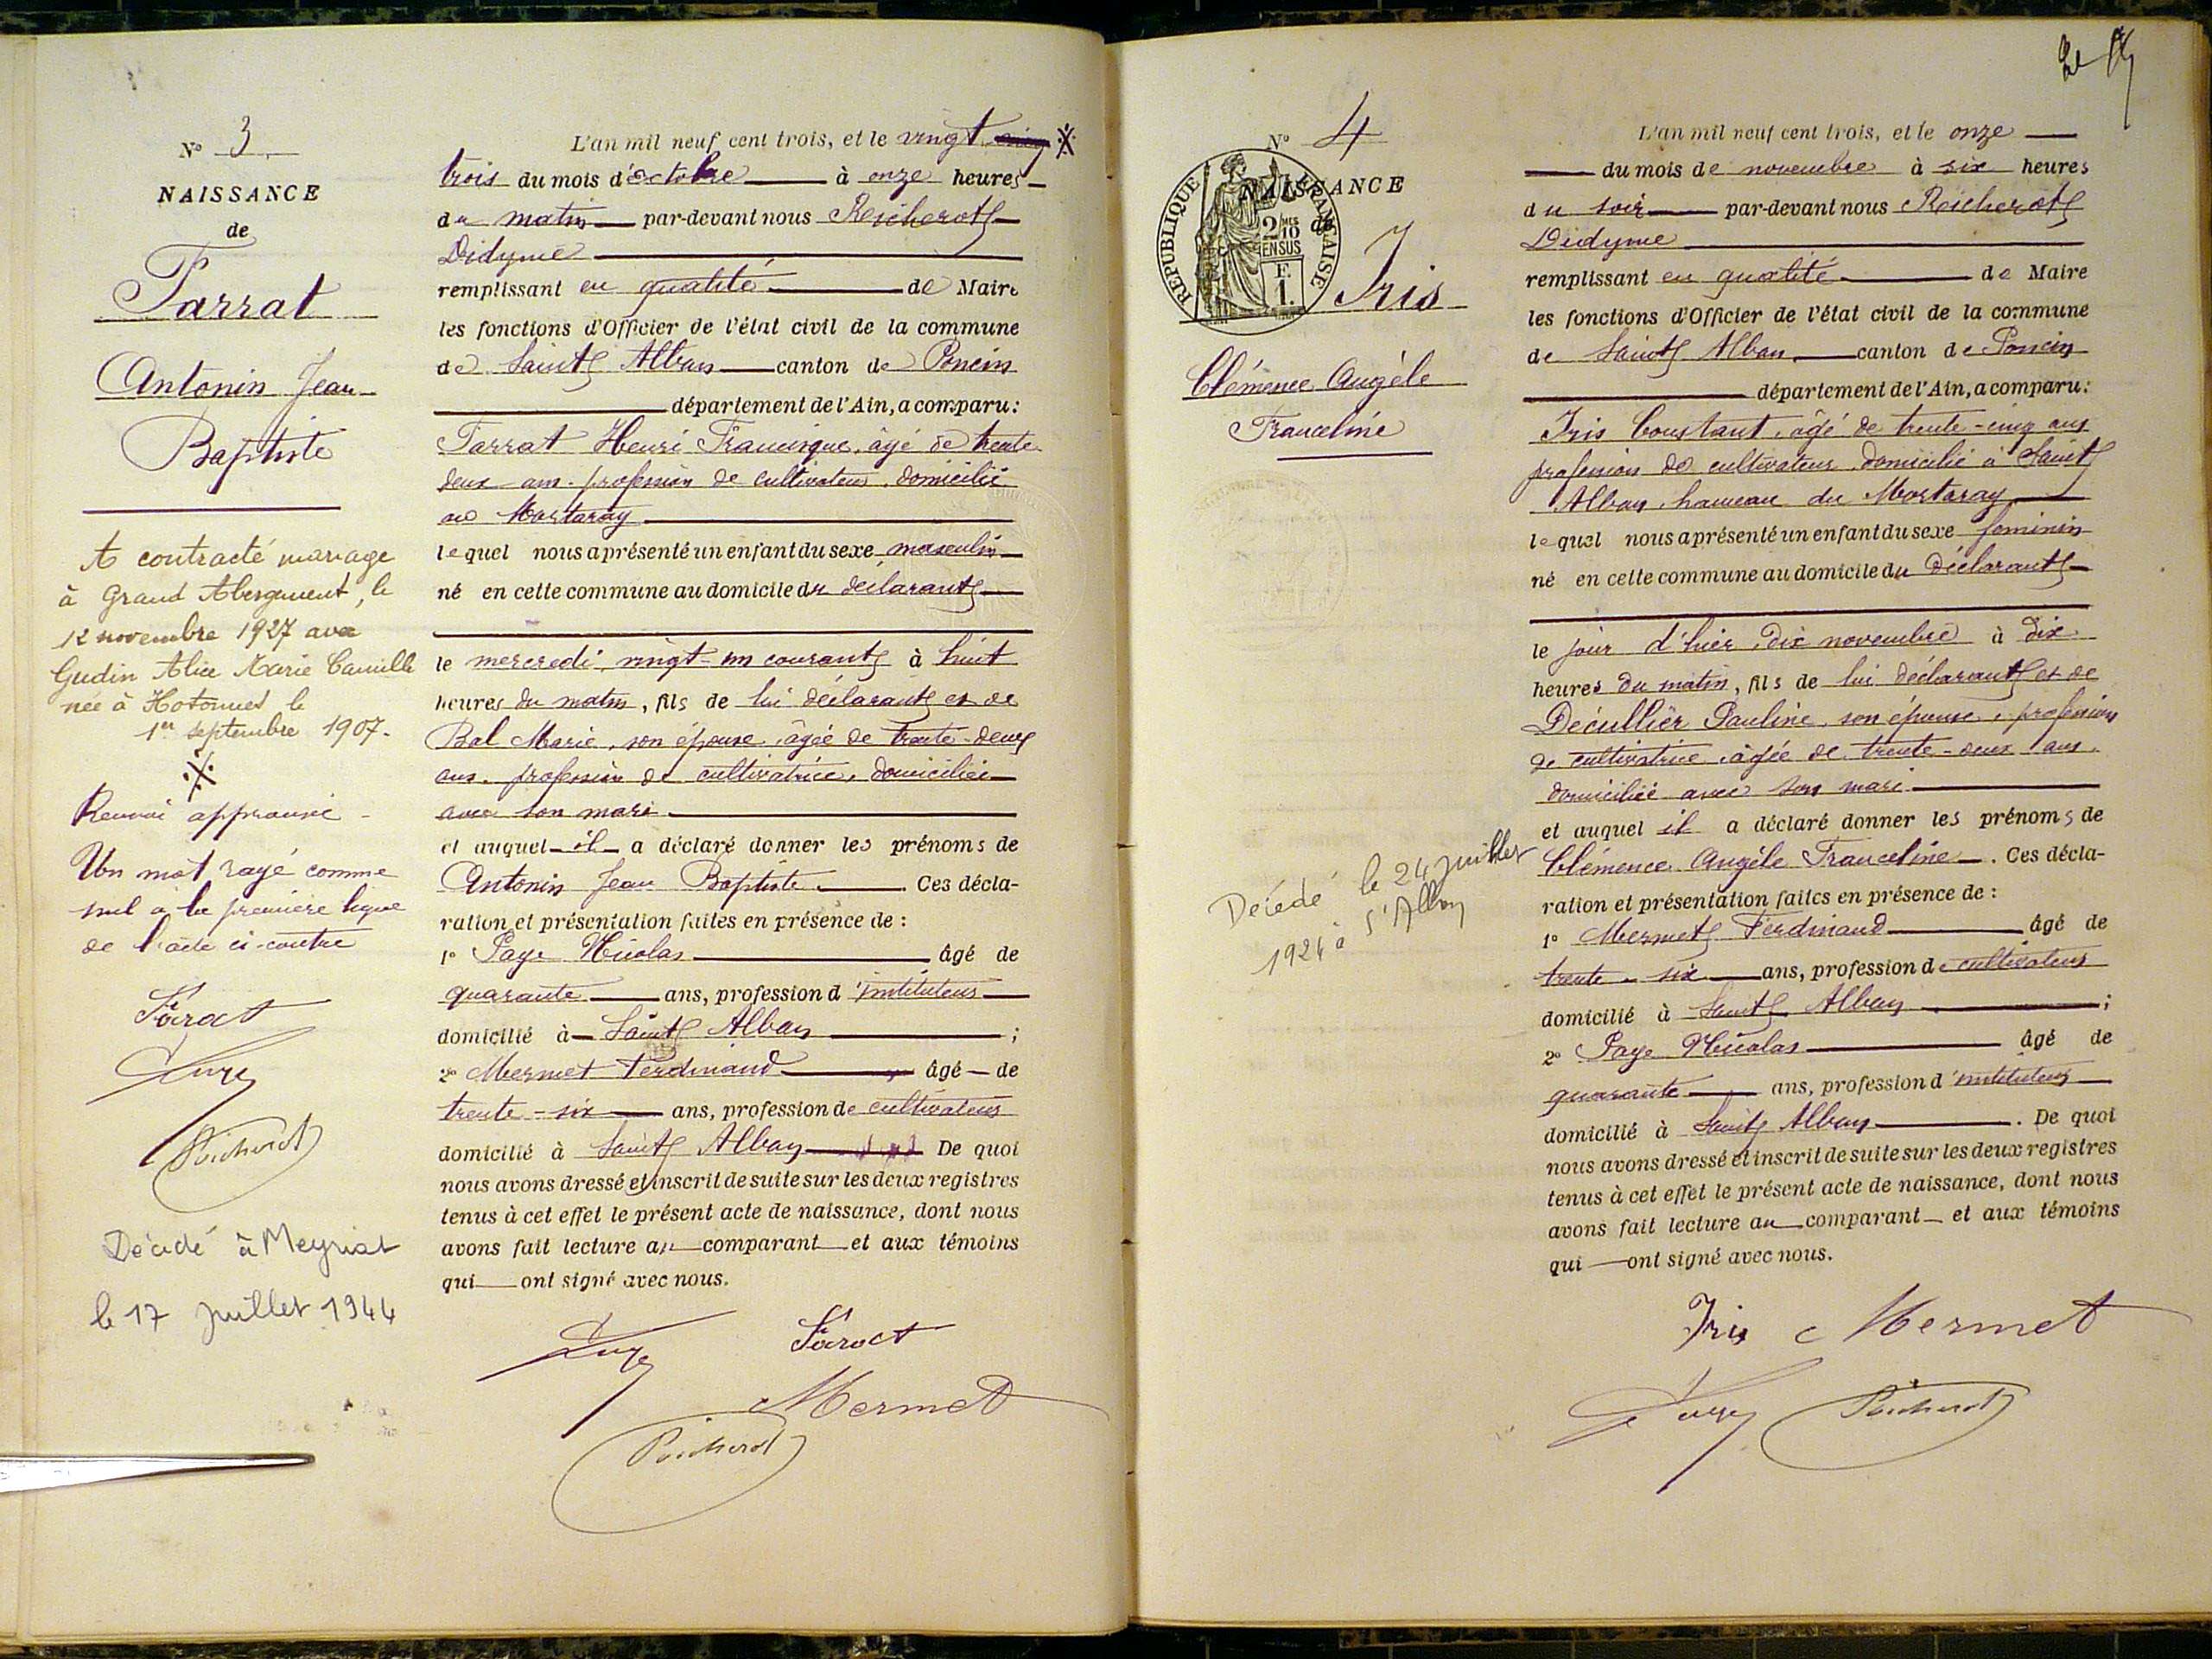 N° 3
NAISSANCE
de
Farrat
Antonin Jean
Baptiste
A contracté mariage
à Grand Abergement, le
12 novembre 1927 avec
Gudin Alice Marie Camille
née à Hotonnes le
1er septembre 1907.
Renvoi approuvé
Un mot rayé comme
nul à la première ligne
de l'acte ci-contre
Reicherot
Décédé à Meyriat
le 17 juillet 1944
L'an mil neuf cent trois, et le vingt
trois du mois d'octobre à onze heures
du matin par-devant nous Reicherot
Didyme
remplissant en qualité de Maire
les fonctions d'Officier de l'état civil de la commune
de Saint Alban canton de Poncin
département de l'Ain, a comparu:
Farrat Henri Francisque, âgé de trente
deux ans. profession de cultivateur, domicilié
au Mortaray
lequel nous a présenté un enfant du sexe masculin
né en cette commune au domicile du déclarant
le mercredi vingt-un courant à huit
heures du matin, fils de lui déclarant et de
Bal Marie, son épouse, âgée de trente-deux
ans. profession de cultivatrice, domiciliée
avec son mari
et auquel il a déclaré donner les prénoms de
Antonin Jean Baptiste. Ces décla-
ration et présentation faites en présence de :
1° Page Nicolas âgé de
quarante ans, profession d'instituteur
domicilié à Saint Alban ;
2° Mermet Ferdinand âgé de
trente-six ans, profession de cultivateur
domicilié à Saint Alban De quoi
nous avons dressé et inscrit de suite sur les deux registres
tenus à cet effet le présent acte de naissance, dont nous
avons fait lecture au comparant et aux témoins
qui ont signé avec nous.
Mermet
Reicherot
N° 4
NAISSANCE
de
REPUBLIQUE FRANCAISE
2/10 MES
EN SUS
F.
1.
Iris
Clémence Angèle
Franceline
Décédé le 24 juillet
1924 à St Alban
L'an mil neuf cent trois, et le onze
du mois de novembre à six heures
du soir par-devant nous Reicherot
Didyme
remplissant en qualité de Maire
les fonctions d'Officier de l'état civil de la commune
de Saint Alban canton de Poncin
département de l'Ain, a comparu:
Iris Constant, âgé de trente-cinq ans
profession de cultivateur domicilié à Saint
Alban, hameau du Mortaray
lequel nous a présenté un enfant du sexe féminin
né en cette commune au domicile du Déclarant
le jour d'hier, dix novembre à dix
heures du matin, fils de lui déclarant et de
Décullier Pauline, son épouse, profession
de cultivatrice, âgée de trente-deux ans.
domiciliée avec son mari
et auquel il a déclaré donner les prénoms de
Clémence Angèle Franceline. Ces décla-
ration et présentation faites en présence de :
1° Mermet Ferdinand âgé de
trente-six ans, profession de cultivateur
domicilié à Saint Alban ;
2° Page Nicolas âgé de
quarante ans, profession d'instituteur
domicilié à Saint Alban. De quoi
nous avons dressé et inscrit de suite sur les deux registres
tenus à cet effet le présent acte de naissance, dont nous
avons fait lecture au comparant et aux témoins
qui ont signé avec nous.
Iris Mermet
Reicherot